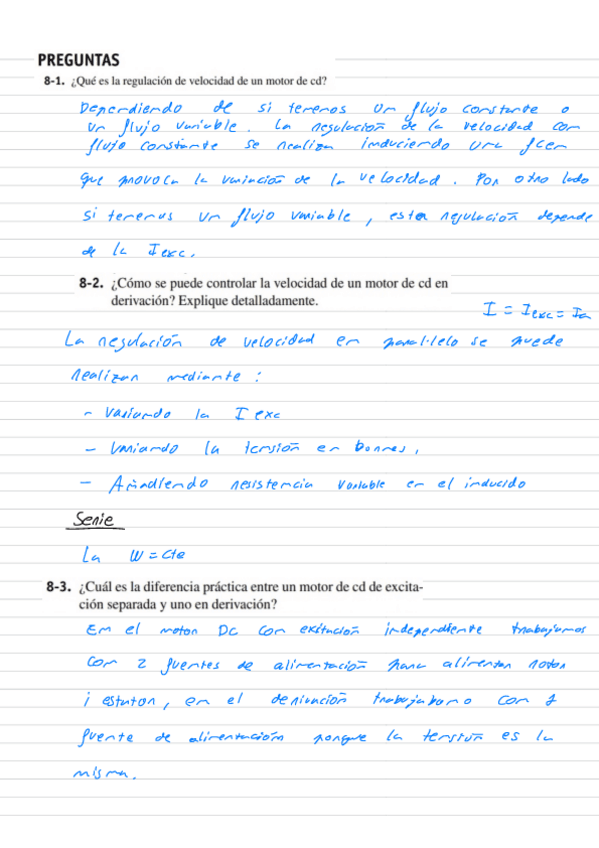 PREGUNTAS
8-1. ¿Qué es la regulación de velocidad de un motor de cd?
Dependiendo de si tenemos un flujo constante o
un flujo variable. La regulación de la velocidad con
flujo constante se realiza induciendo una fcem
que provoca la variación de la velocidad. Por otro lado
si tenemos un flujo variable, esta regulación depende
de la Iexc.
8-2. ¿Cómo se puede controlar la velocidad de un motor de cd en
derivación? Explique detalladamente.
I = Iexc = Ia
La regulación de velocidad en paral·lelo se puede
realizar mediante:
- variando la Iexc
- Variando la tensión en bornes.
- Añadiendo resistencia variable en el inducido
Serie
La W = cte
8-3. ¿Cuál es la diferencia práctica entre un motor de cd de excita-
ción separada y uno en derivación?
En el motor DC con exitación independiente trabajamos
con 2 fuentes de alimentación para alimentar rotor
i estator, en el derivación trabajabamo con 1
fuente de alimentación porque la tensión es la
misma.